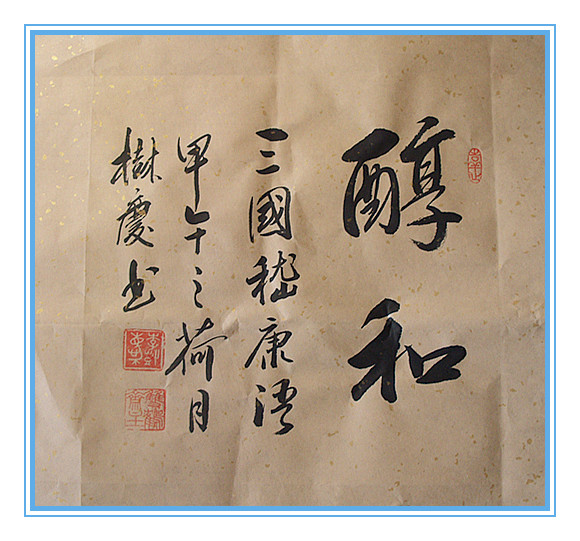 醇和
三國嵇康语
甲午之荷月
樹慶书